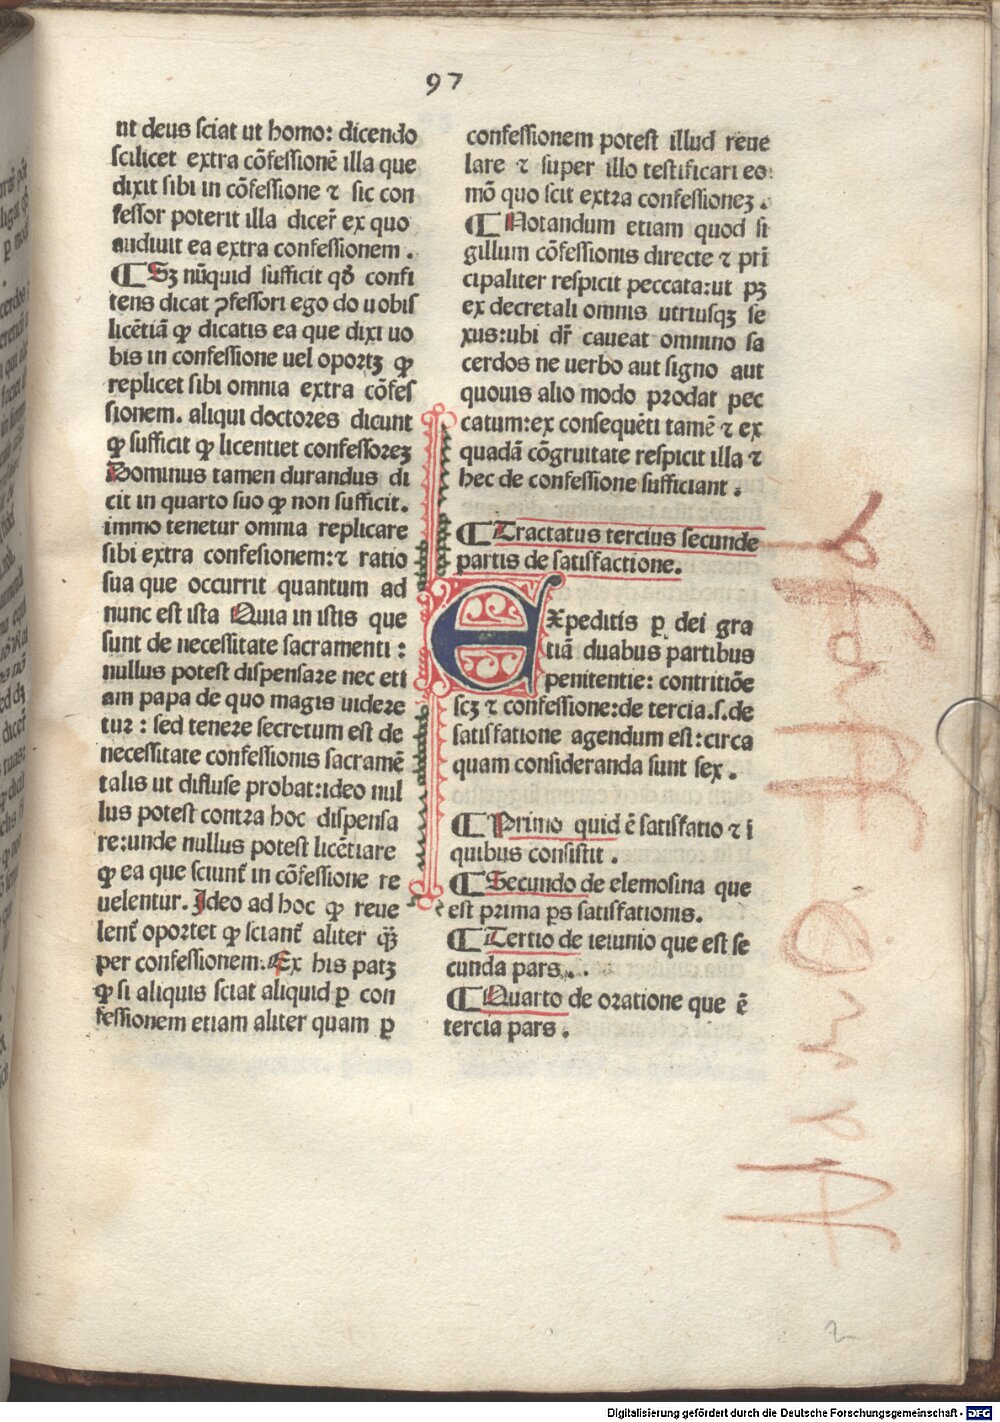 97
ut deus sciat ut homo: dicendo
scilicet extra cõfessionẽ illa que
dixit sibi in cõfessione ⁊ sic con
fessor poterit illa dicer̃ ex quo
audiuit ea extra confessionem .
¶ Sꝫ nũquid sufficit qđ confi
tens dicat ꝯfessori ego do uobis
licẽtiã ꝙ dicatis ea que dixi uo
bis in confessione uel oportꝫ ꝙ
replicet sibi omnia extra cõfes
sionem. aliqui doctores dicunt
ꝙ sufficit ꝙ licentiet confessoreꝫ
Dominus tamen durandus di
cit in quarto suo ꝙ non sufficit.
immo tenetur omnia replicare
sibi extra confesionem:⁊ ratio
sua que occurrit quantum ad
nunc est ista Quia in istis que
sunt de necessitate sacramenti :
nullus potest dispensare nec eti
am papa de quo magis uidere
tur : sed tenere secretum est de
necessitate confessionis sacramẽ
talis ut diffuse probat:ideo nul
lus potest contra hoc dispensa
re:unde nullus potest licẽtiare
ꝙ ea que sciunt̃ in cõfessione re
uelentur. Ideo ad hoc ꝙ reue
lent̃ oportet ꝙ sciant̃ aliter q̃ꝫ
per confessionem. Ex his patꝫ
ꝙ si aliquis sciat aliquid ꝑ con
fessionem etiam aliter quam ꝑ
confessionem potest illud reue
lare ⁊ super illo testificari eo
mõ quo scit extra confessioneꝫ .
¶ Notandum etiam quod si
gillum cõfessionis directe ⁊ pri
cipaliter respicit peccata:ut pꝫ
ex decretali omnis utriusqꝫ se
xus:ubi dr̃ caueat omnino sa
cerdos ne uerbo aut signo aut
quouis alio modo prodat pec
catum:ex consequẽti tamẽ ⁊ ex
quadã cõgruitate respicit illa ⁊
hec de confessione sufficiant .
¶ Tractatus tercius secunde
partis de satisfactione.
Expeditis ꝑ dei gra
tiã duabus partibus
penitentie: contritiõe
scꝫ ⁊ confessione:de tercia.s.de
satisfatione agendum est:circa
quam consideranda sunt sex .
¶ Primo quid ẽ satisfatio ⁊ ĩ
quibus consistit .
¶ Secundo de elemosina que
est prima ꝑs satisfationis.
¶ Tertio de ieiunio que est se
cunda pars..
¶ Quarto de oratione que ẽ
tercia pars .
2
Digitalisierung gefördert durch die Deutsche Forschungsgemeinschaft - DFG